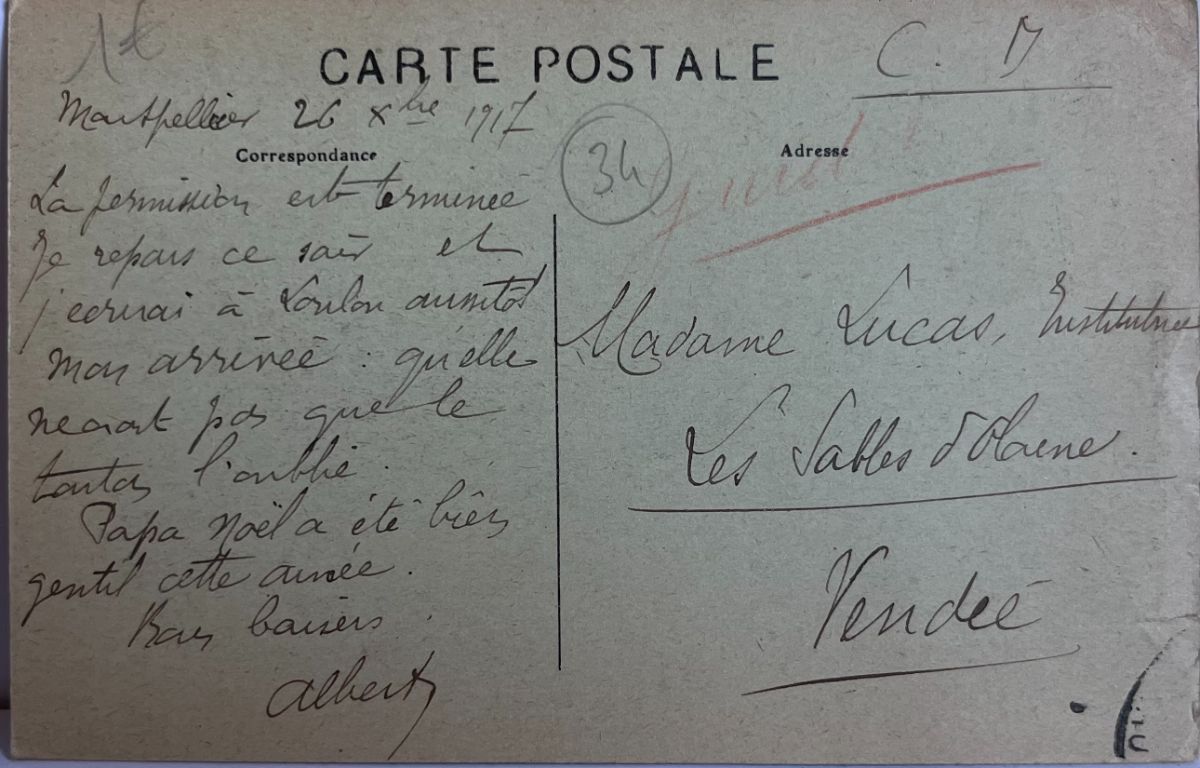 1€
CARTE POSTALE
C. M
Montpellier 26 Xbre 1917
Correspondance
34
Adresse
La permission est terminée
Je repars ce soir et
j'ecrirai à Loulou aussitôt
mon arrivée : qu'elle
ne croit pas que le
tonton l'oublie.
Papa Noël a été bien
gentil cette année.
Bons baisers.
Albert
Madame Lucas, Institutrice
Les Sables d'Olonne.
Vendée